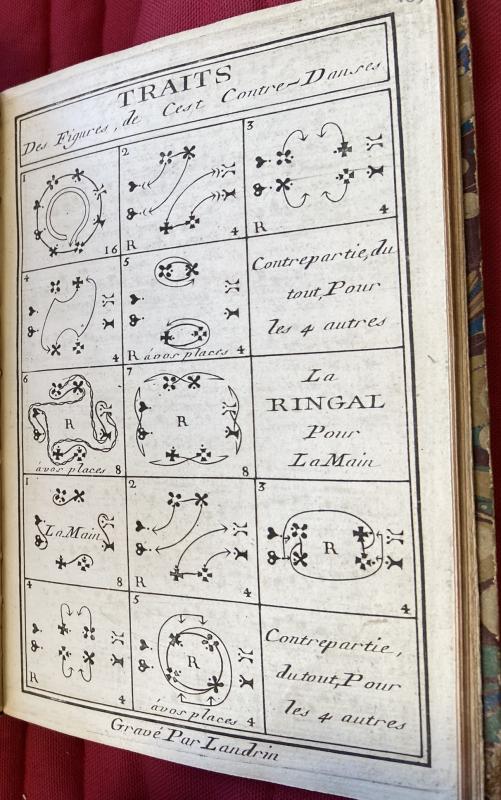 TRAITS
Des Figures, de Cest Contre-Danses
1
16
2
R
4
3
R
4
4
4
5
R
ávos places
4
Contrepartie, du
tout, Pour
les 4 autres
6
R
ávos places
8
7
R
8
La
RINGAL
Pour
La Main
1
La Main
8
2
R
4
3
R
4
4
R
4
5
R
ávos places
4
Contrepartie,
du tout, Pour
les 4 autres
Gravé Par Landrin